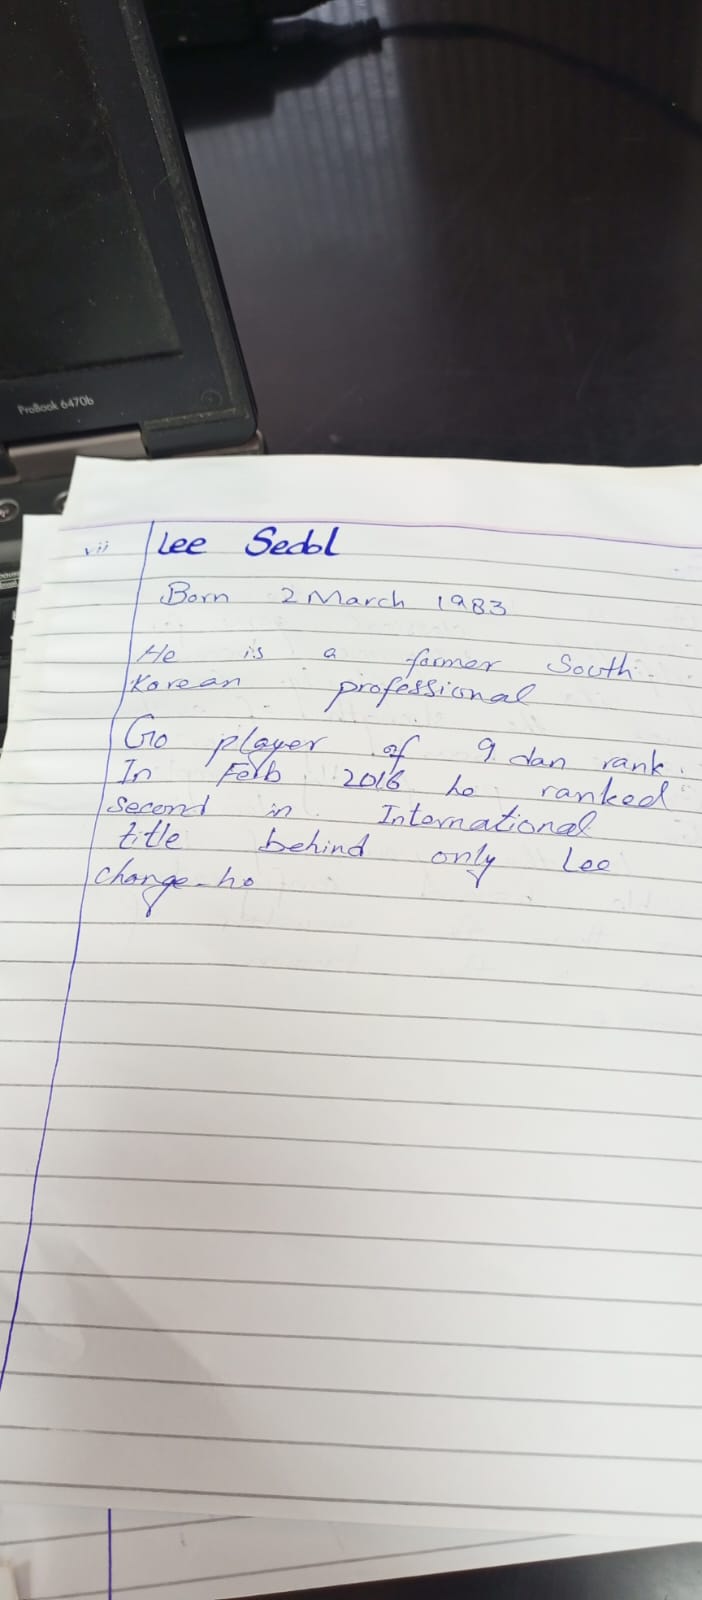 ProBook 6470b
vii Lee Sedol
Born 2 March 1983
He is a former South
Korean professional
Go player of 9 dan rank.
In Feb 2016 he ranked
second in International
title behind only Lee
change-ho